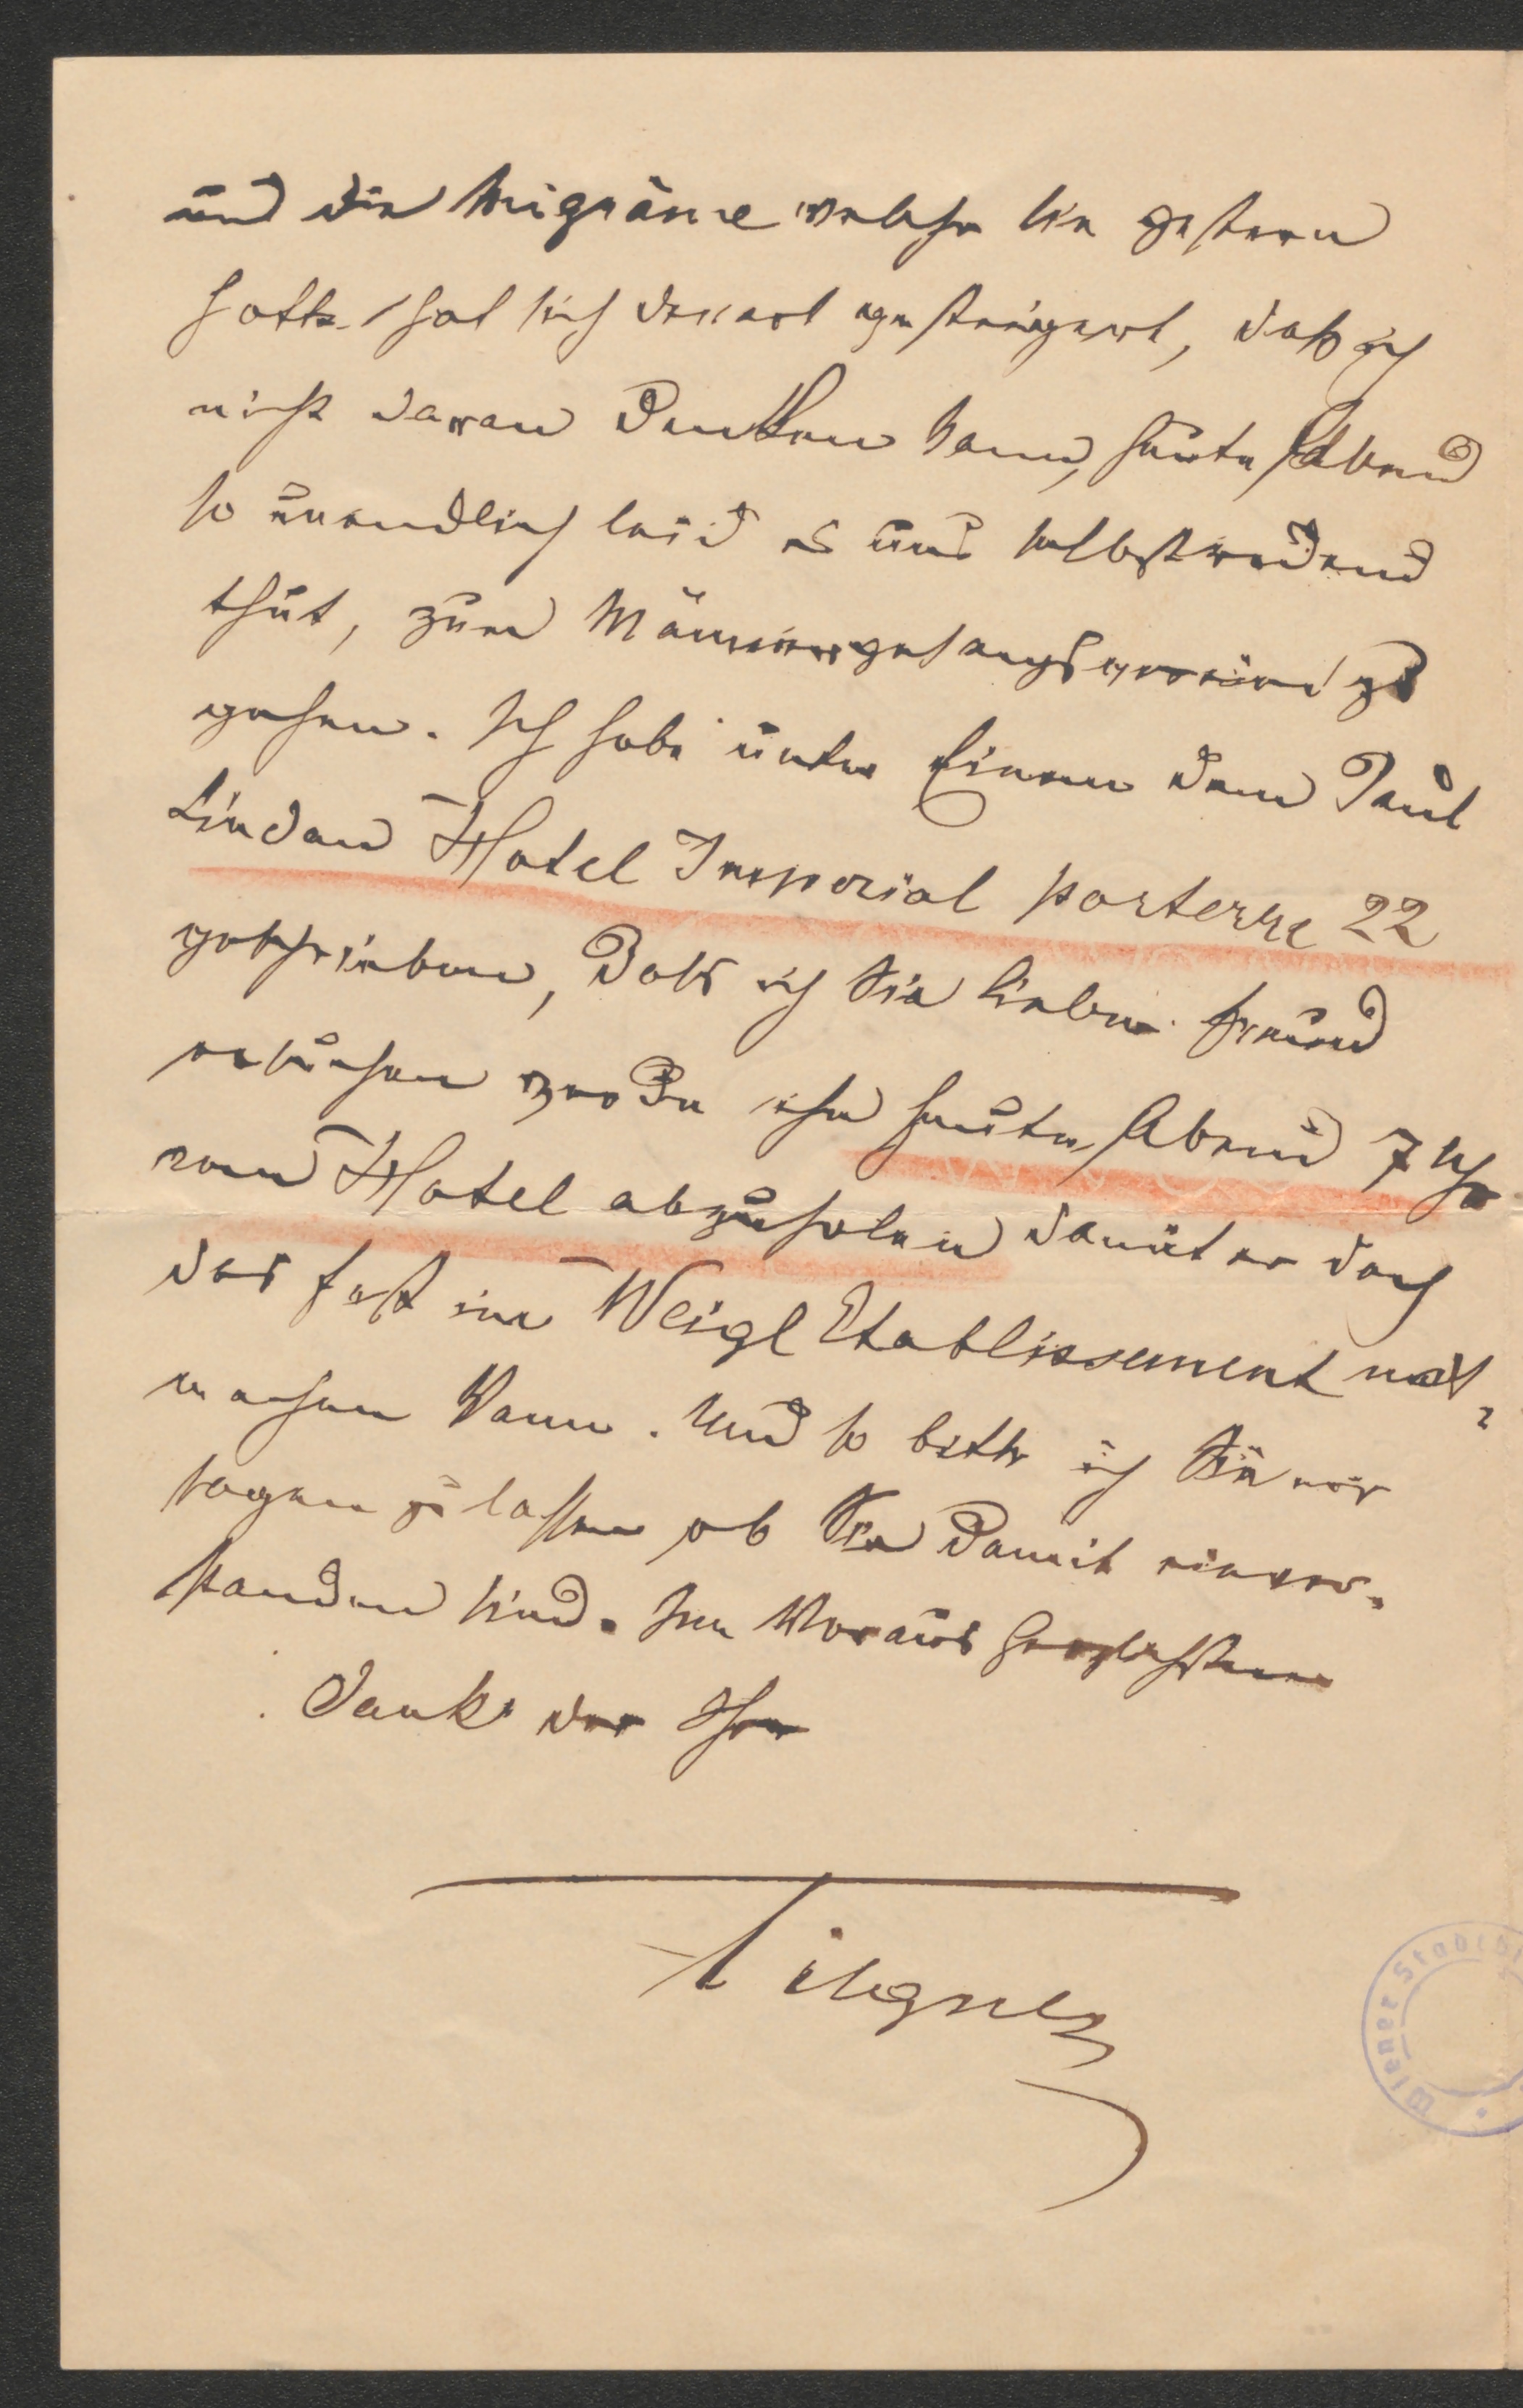 und die Migräne welche sie gestern
hatte hat sich derart gesteigert, daß ich
nicht daran denken kann, heute Abend
so unendlich leid es uns selbstredend
thut, zum Männergesangsverein zu
gehen. Ich habe unter Einem dem Paul
Lindau Hotel Imperial parterre 22
geschrieben, daß ich Sie lieber Freund
ersuchen werde ihn heute Abend 7 Uhr
vom Hotel abzuholen damit er doch
das Fest im Weigl Etablissement mit
machen kann. Und so bitte ich Sie mir
sagen zu lassen ob Sie damit einver-
standen sind. Im Voraus herzlichsten
Dank der Ihre
Tilgner
Wiener Stadtbi